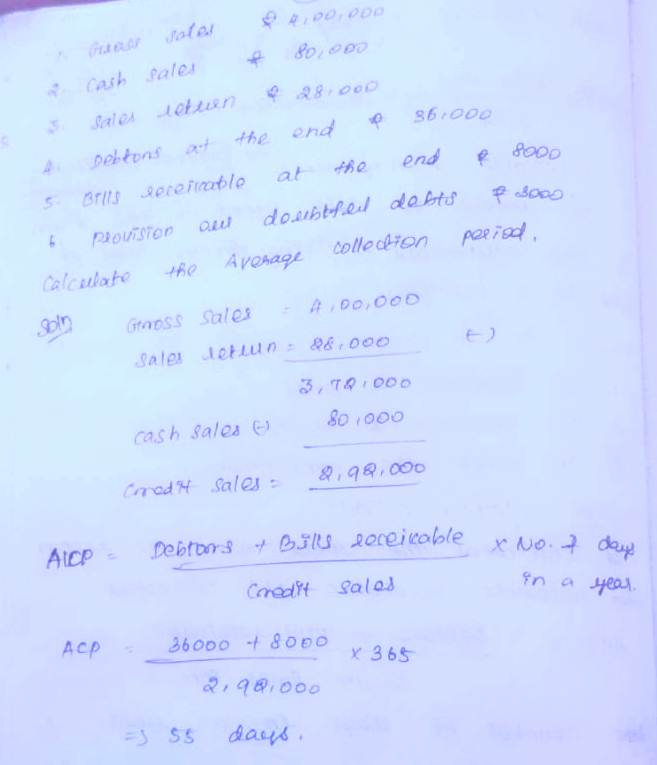 1. Gross sales ₹ 4,00,000
2. Cash sales ₹ 80,000
3. Sales return ₹ 28,000
4. Debtors at the end ₹ 36,000
5. Bills receivable at the end ₹ 8000
6. Provision doubtful debts ₹ 3000
Calculate the Average collection period.
Soln Gross Sales = 4,00,000
Sales return = 28,000 (-)
3,72,000
cash sales (-) 80,000
Credit Sales = 2,92,000
ACP = Debtors + Bills receivable × No. of days
Credit sales in a year.
ACP = 36000 + 8000 × 365
2,92,000
=> 55 days.